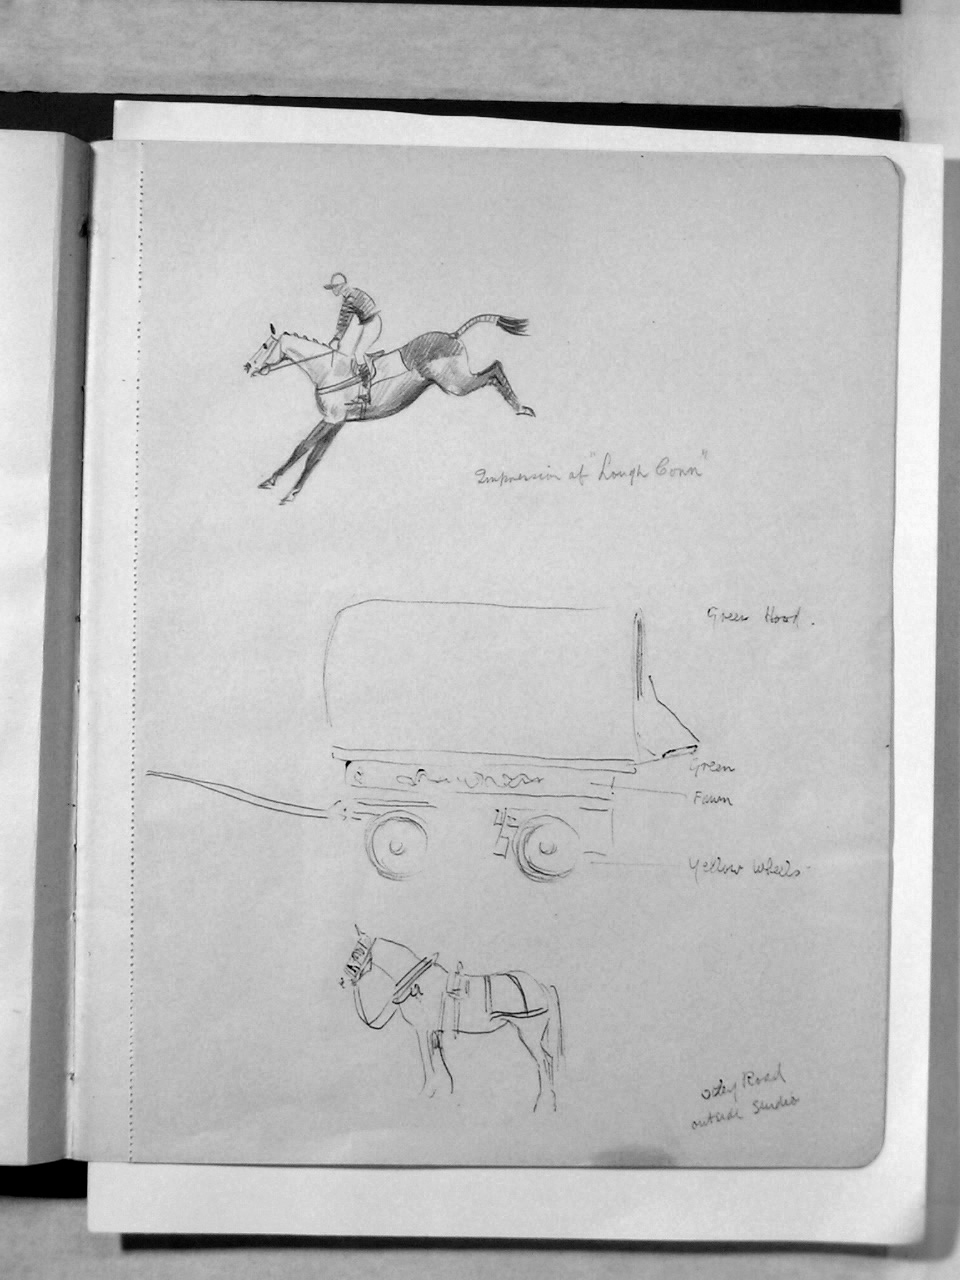 Impression of "Lough Conn"
Green Hood.
Green
Fawn
Yellow Wheels
Otley Road
outside Studio